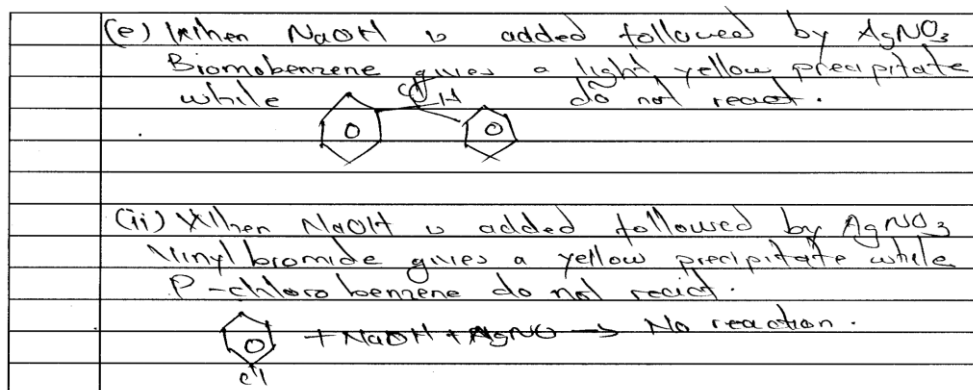 (e) When NaOH is added followed by AgNO3
Bromobenzene gives a light yellow precipitate
while do not react.
Cl
H
(ii) When NaOH is added followed by AgNO3
Vinyl bromide gives a yellow precipitate while
P-chlorobenzene do not react.
+ NaOH + AgNO → No reaction.
Cl